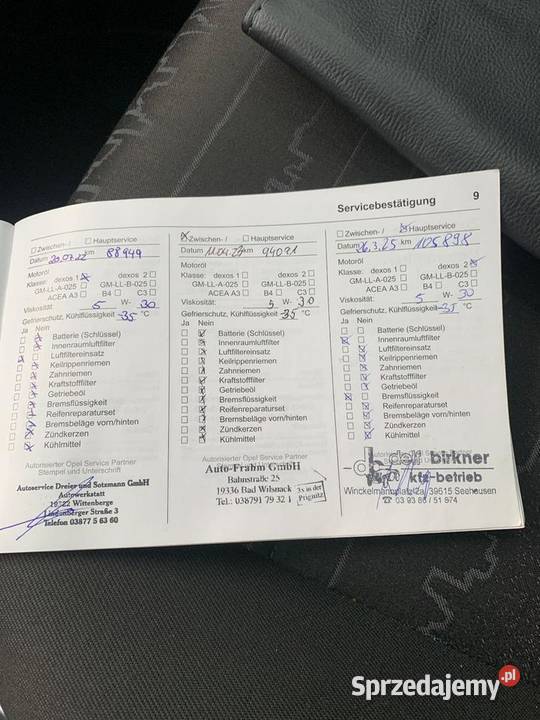 Servicebestätigung 9
Zwischen- / Hauptservice
Datum 20.07.22 km 88949
Motoröl
Klasse: dexos 1 dexos 2
GM-LL-A-025 GM-LL-B-025
ACEA A3 B4 C3
Viskosität: 5 W- 30
Gefrierschutz, Kühlflüssigkeit -35 °C
Ja Nein
Batterie (Schlüssel)
Innenraumluftfilter
Luftfiltereinsatz
Keilrippenriemen
Zahnriemen
Kraftstofffilter
Getriebeöl
Bremsflüssigkeit
Reifenreparaturset
Bremsbeläge vorn/hinten
Zündkerzen
Kühlmittel
Autorisierter Opel Service Partner
Stempel und Unterschrift
Autoservice Dreier und Sotzmann GmbH
Autowerkstatt
19322 Wittenberge
Straße 3
Telefon 03877 5 63 60
Zwischen- / Hauptservice
Datum 11.04.23 km 94091
Motoröl
Klasse: dexos 1 dexos 2
GM-LL-A-025 GM-LL-B-025
ACEA A3 B4 C3
Viskosität: 5 W- 30
Gefrierschutz, Kühlflüssigkeit -35 °C
Ja Nein
Batterie (Schlüssel)
Innenraumluftfilter
Luftfiltereinsatz
Keilrippenriemen
Zahnriemen
Kraftstofffilter
Getriebeöl
Bremsflüssigkeit
Reifenreparaturset
Bremsbeläge vorn/hinten
Zündkerzen
Kühlmittel
Autorisierter Opel Service Partner
Auto-Frahm GmbH
Bahnstraße 25
19336 Bad Wilsnack
Tel.: 038791 79 32 1
3x in der
Prignitz
Zwischen- / Hauptservice
Datum 26.3.25 km 105898
Motoröl
Klasse: dexos 1 dexos 2
GM-LL-A-025 GM-LL-B-025
ACEA A3 B4 C3
Viskosität: 5 W- 30
Gefrierschutz, Kühlflüssigkeit -35 °C
Ja Nein
Batterie (Schlüssel)
Innenraumluftfilter
Luftfiltereinsatz
Keilrippenriemen
Zahnriemen
Kraftstofffilter
Getriebeöl
Bremsflüssigkeit
Reifenreparaturset
Bremsbeläge vorn/hinten
Zündkerzen
Kühlmittel
birkner
kfz-betrieb
Winckelmannplatz 2a, 39615 Seehausen
Sprzedajemy.pl